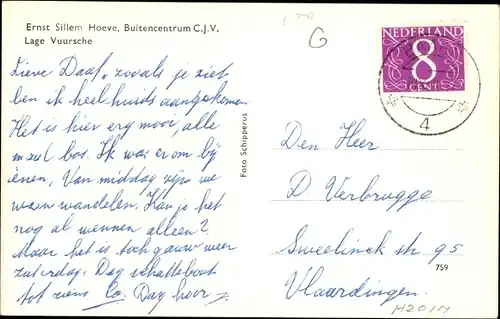 Ernst Sillem Hoeve, Buitencentrum C.J.V.
Lage Vuursche
Lieve Daaf, zoals je ziet
ben ik heelhuids aangekomen
Het is hier erg mooi, alle
maal bos. Ik was er om bij
énen, Van middag zijn we
wezen wandelen. Kan je het
nog al wennen alleen?
Maar het is toch gauw weer
zaterdag. Dag schattebout
tot ziens Co. Dag hoor
Foto Schipperus
G
NEDERLAND
8
CENT
4
Den Heer
D Verbrugge
Sweelinck str 95
759
Vlaardingen.